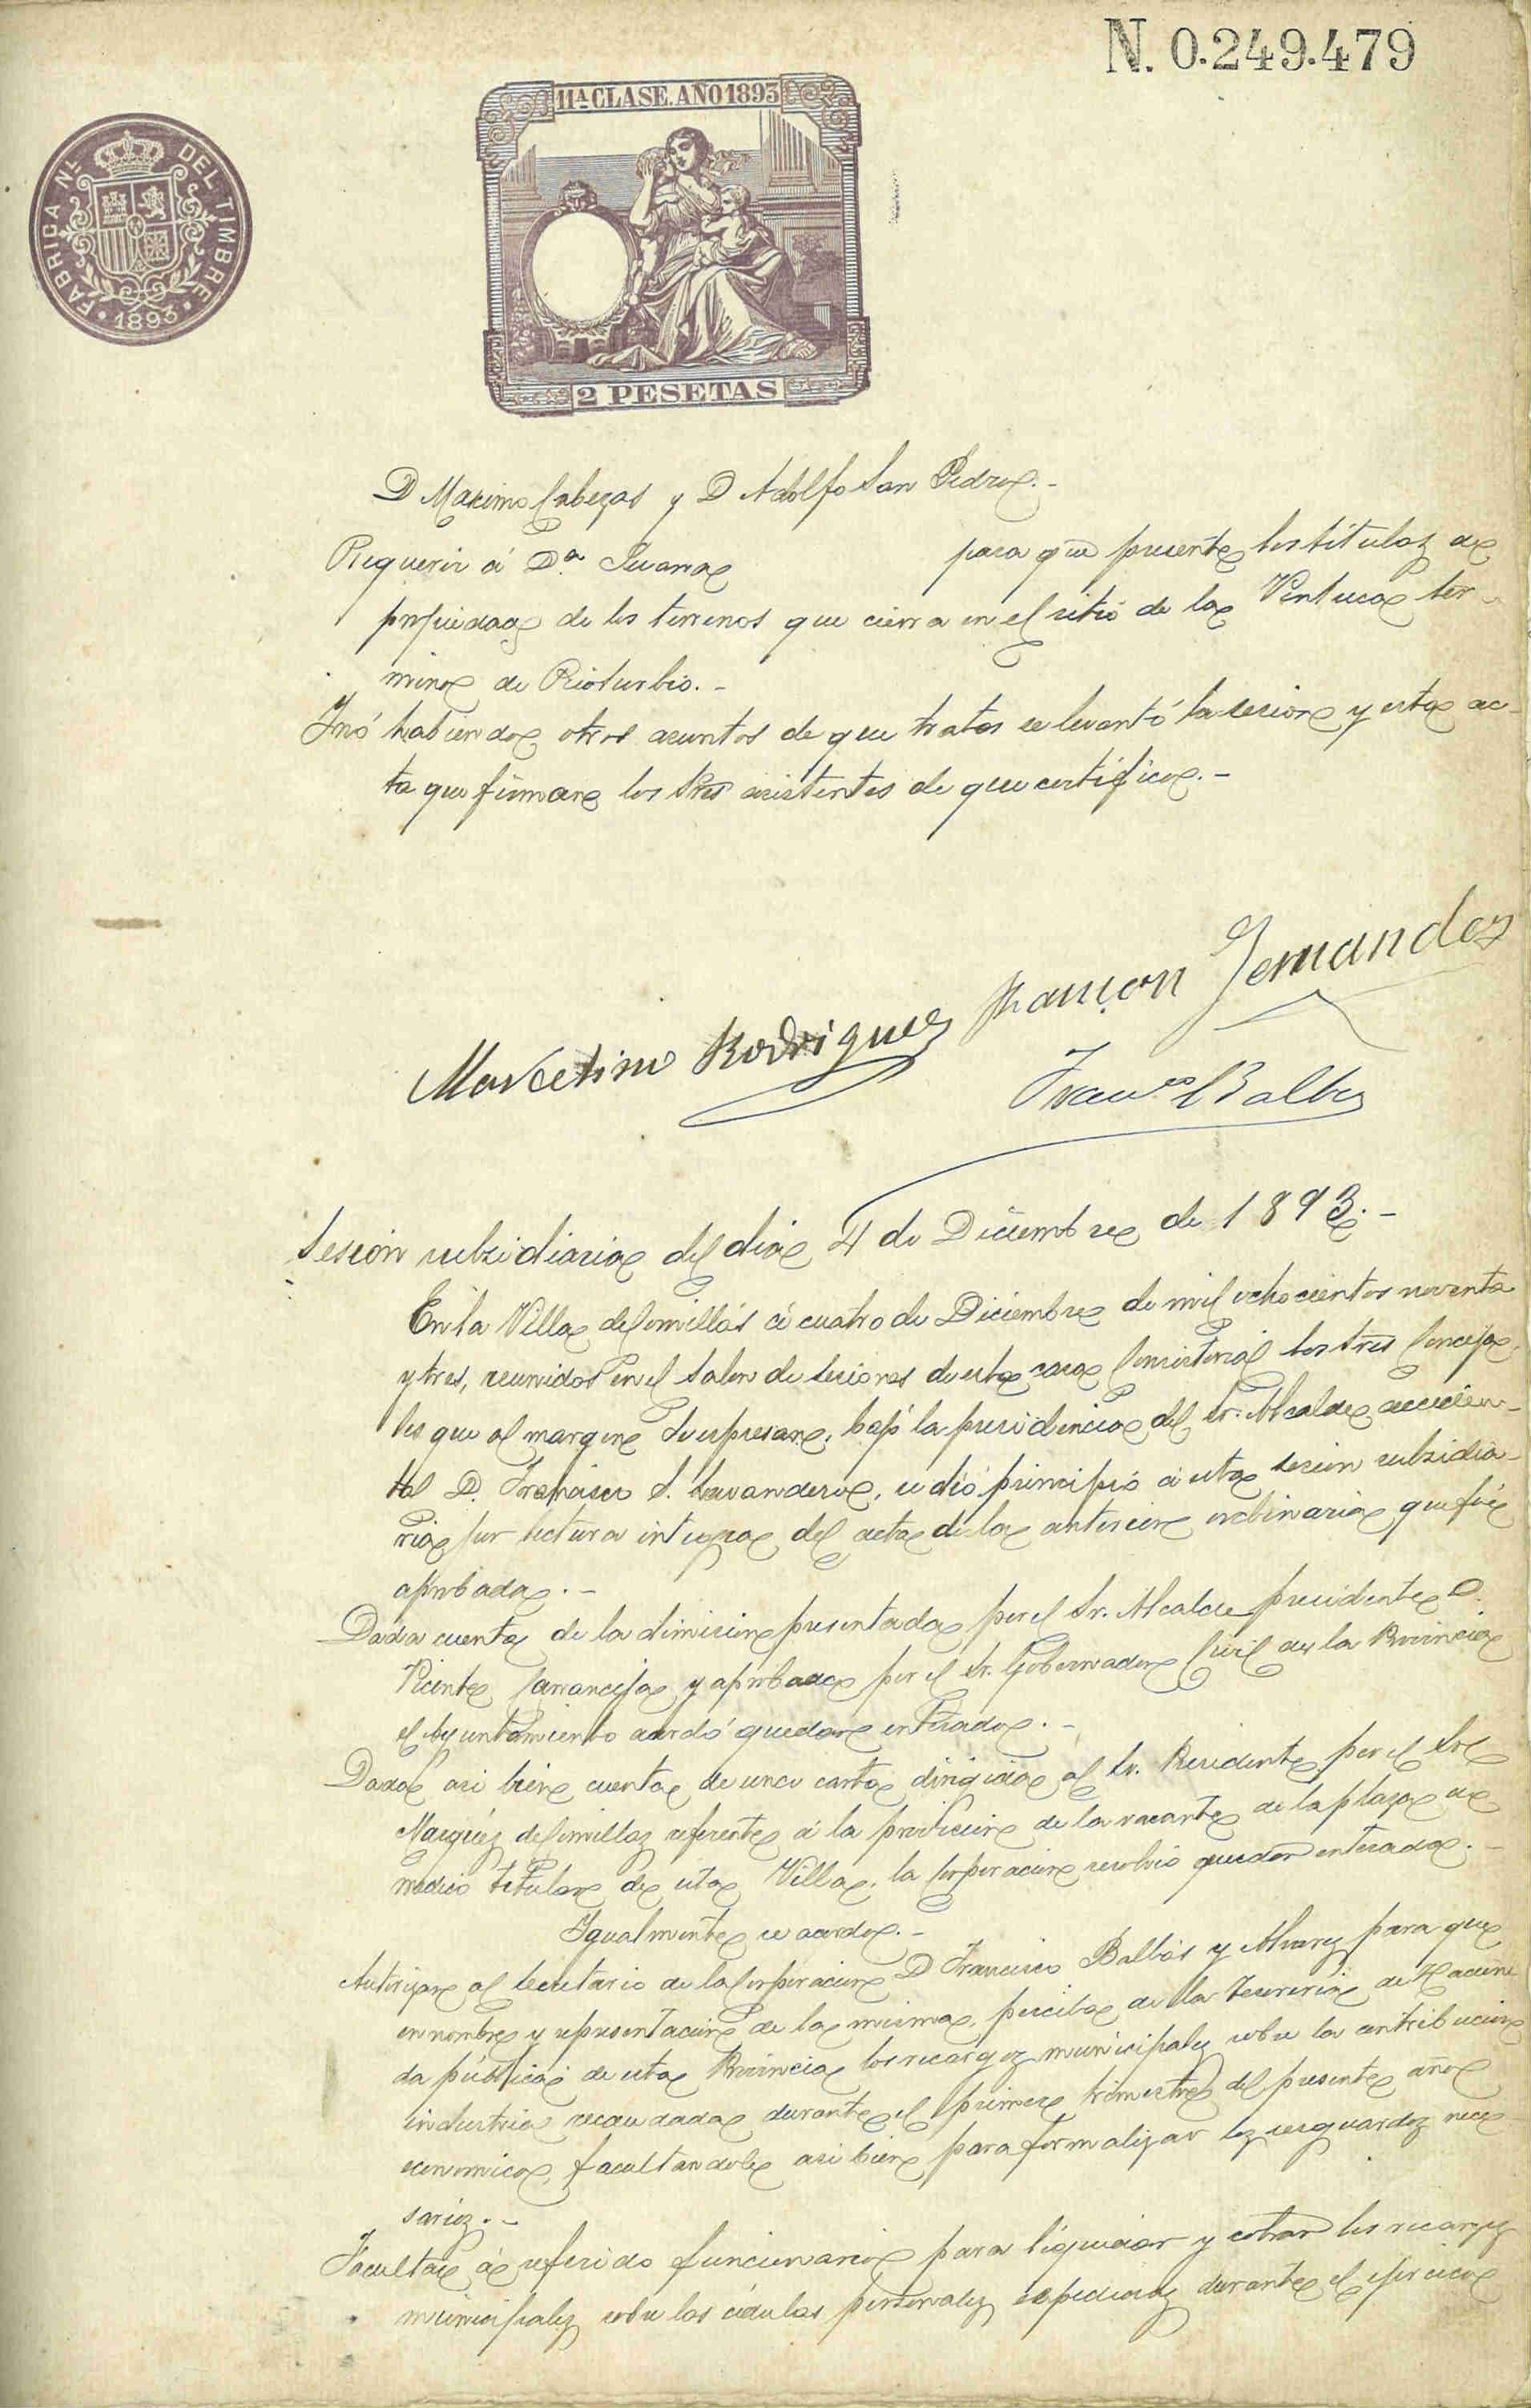 N. 0.249.479
11ª CLASE. AÑO 1893
FABRICA Nˡ DEL TIMBRE
1893
2 PESETAS
D Maximo Cabezas y D Adolfo San Pedro.-
Requerir á Dª Juana para que presente los titulos de
propiedad de los terrenos que cierra en el sitio de la Ventuca ter-
mino de Rioturbio.-
Y nó habiendo otros asuntos de que tratar se levantó la sesion y esta ac-
ta que firman los Sres asistentes de que certifico.-
Marcelino Rodriguez Ramon Fernandez
Franco Balbas
Sesión subsidiaria del dia 4 de Diciembre de 1893.-
En la Villa de Comillas á cuatro de Diciembre de mil ochocientos noventa
y tres, reunidos en el Salon de sesiones de esta casa Consistorial los Sres Conceja-
les que al margen se espresan, bajo la presidencia del Sr. Alcalde acciden-
tal D. Francisco S. Lavandero, se dió principio á esta sesion subsidia-
ria por lectura integra del acta de la anterior ordinaria que fué
aprobada.-
Dada cuenta de la dimision presentada por el Sr. Alcalde presidente D.
Vicente Carranceja y aprobada por el Sr. Gobernador Civil de la Provincia
el Ayuntamiento acordó quedar enterado.-
Dada asi bien cuenta de una carta dirigida al Sr. Presidente por el Sr
Marqués de Comillas referente á la provision de la vacante de la plaza de
medico titular de esta Villa, la Corporacion resolvió quedar enterada.-
Igualmente se acordo.-
Autorizar al Secretario de la Corporacion D Francisco Balbás y Alvarez para que
en nombre y representacion de la misma, perciba de la Tesoreria de Hacien
da pública de esta Provincia los recargos municipales sobre la contribucion
industrial recaudada durante el primer trimestre del presente año
economico, facultandole asi bien para formalizar los resguardos nece
sarios.-
Facultar al referido funcionario para liquidar y cobrar los recargos
municipales sobre las cédulas personales espedidas durante el ejercicio